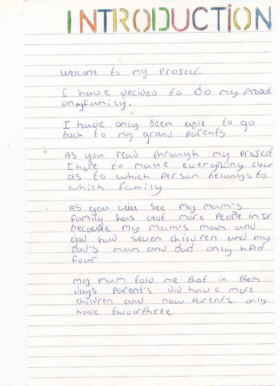 INTRODUCTION
welcome to my Project
I have decided to do my Project
on my family.
I have only been able to go
back to my grand parents
As you read through my Project
I hope to make everything clear
as to which person belongs to
which family
As you will see my mum's
family has lot more People in it
because my mum's mom and
dad had seven children and my
dad's mom and dad only had
four
my mum told me that in them
days Parents did have more
children and now Parents only
have two or three